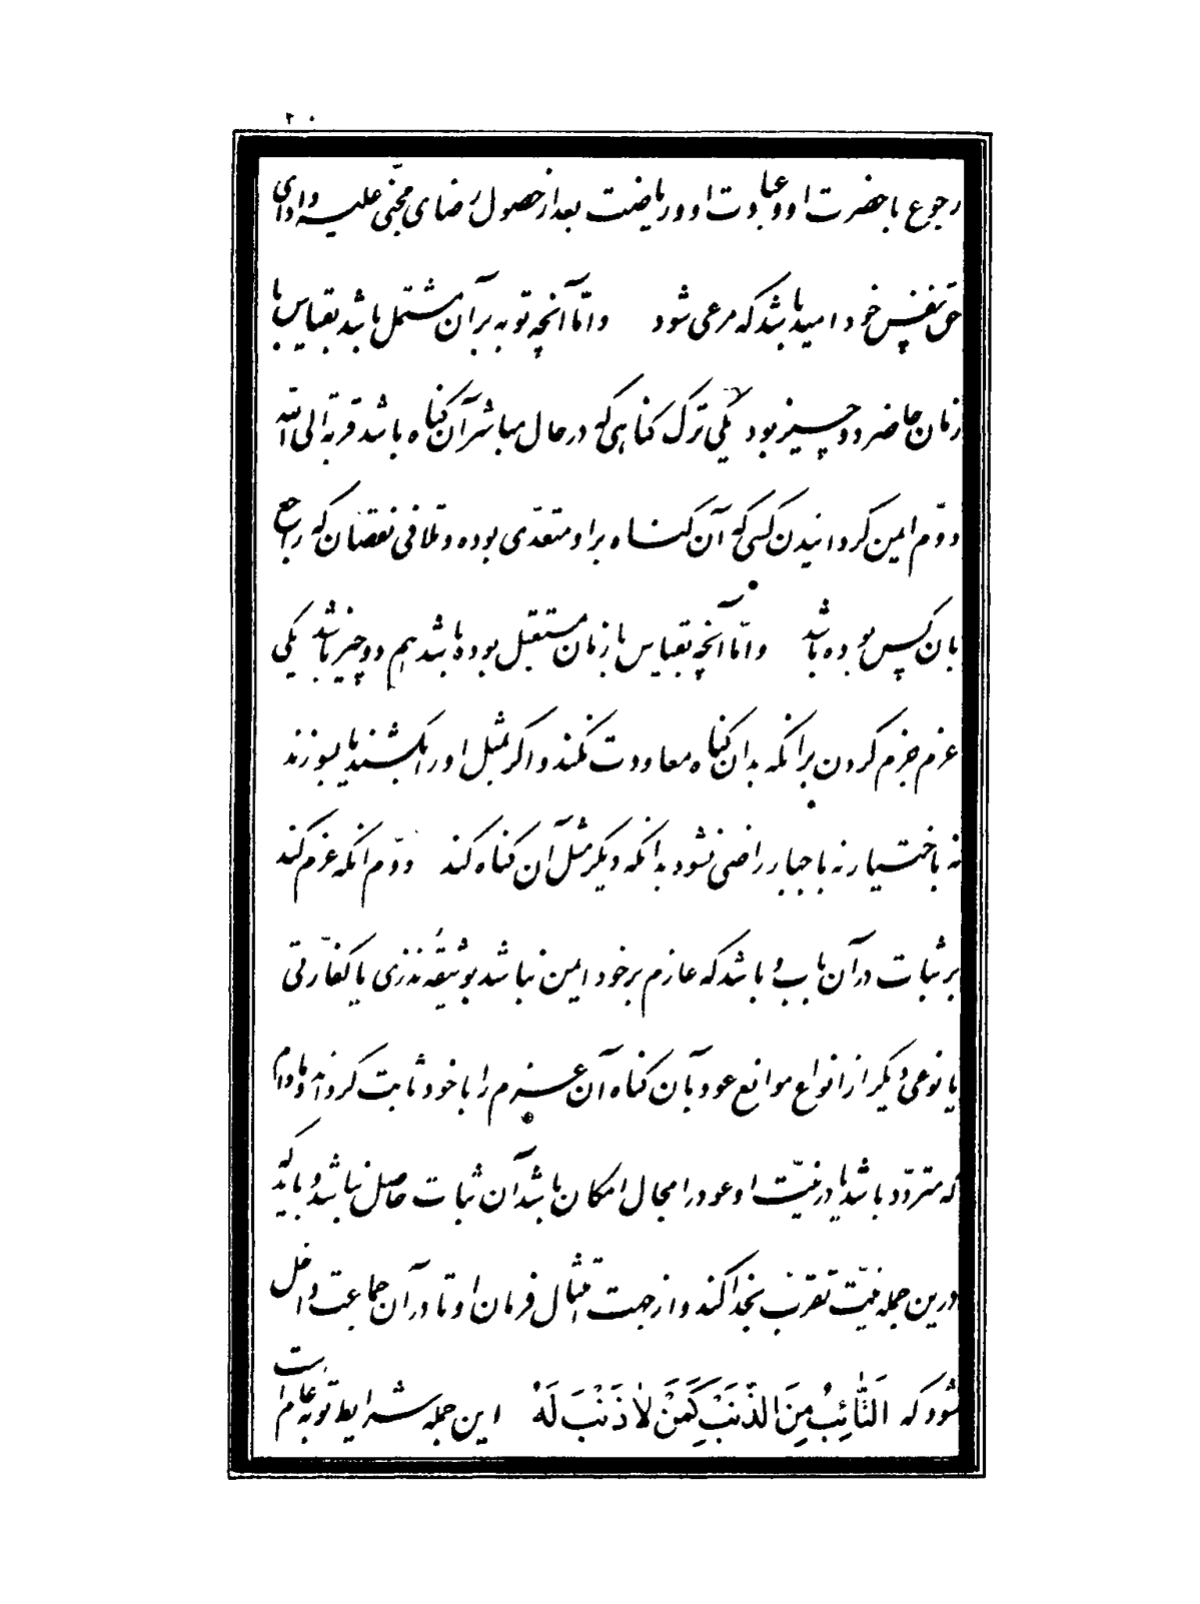 ۲۰
رجوع با حضرت او و عبادت او و ریاضت بعد از حصول رضای مجنی علیه و ادای
حق نفس خود امید باشد که مرعی شود و اما آنچه توبه بر آن مشتمل باشد بقیاس با
زمان حاضر دو چیز بود یکی ترک گناهی که در حال مباشر آن گناه باشد قربة الی الله
دوّم ایمن گردانیدن کسی که آن گناه بر او متعدّی بوده و تلافی نقصان که راجع
بان کس بوده باشد و امّا آنچه بقیاس با زمان مستقبل بوده باشد هم دو چیز باشد یکی
عزم جزم کردن برانکه بدان گناه معاودت نکند و اگر بمثل او را بکشند یا بسوزند
نه باختیار نه باجبار راضی نشود بدانکه دیگر مثل آن گناه کند دوّم انکه عزم کند
بر ثبات در آن باب و باشد که عازم بر خود ایمن نباشد بوثیقه نذری یا کفّارتی
یا نوعی دیگر از انواع موانع عود بآن گناه آن عزم را با خود ثابت گرداند و مادام
که متردّد باشد یا در نیّت او عود را مجال امکان باشد آن ثبات حاصل نباشد و باید که
درین جمله نیّت تقرّب بخدا کند و از جهت امتثال فرمان او تا در آن جماعت داخل
شود که اَلتّٰائِبُ مِنَ الذَّنْبِ كَمَنْ لاٰ ذَنْبَ لَهُ این جمله شرایط توبه عام است